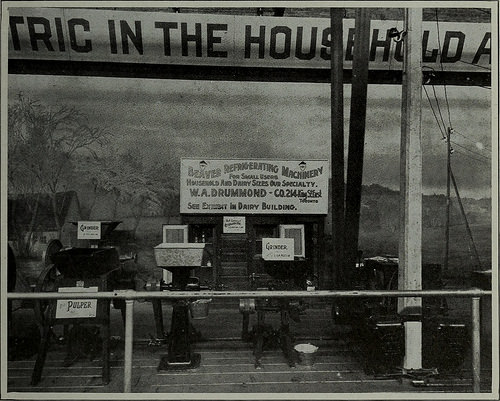 TRIC IN THE HOUSEHOLD A
BEAVER REFRIGERATING MACHINERY
FOR SMALL USERS
HOUSEHOLD AND DAIRY SIZES OUR SPECIALTY.
W.A. DRUMMOND - CO. 214 King St East
TORONTO
SEE EXHIBIT IN DAIRY BUILDING.
GRINDER
GRINDER
PULPER